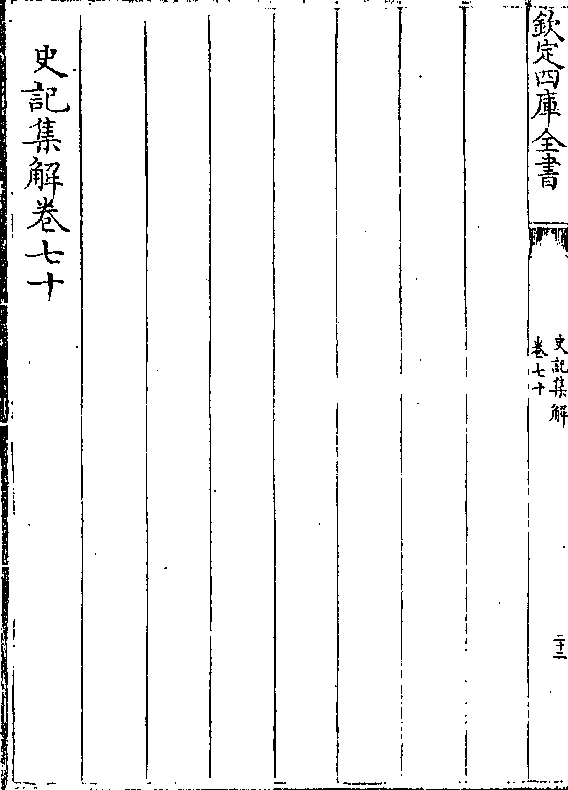 欽定四庫全書
史記集解
卷七十
二十二
史記集解卷七十